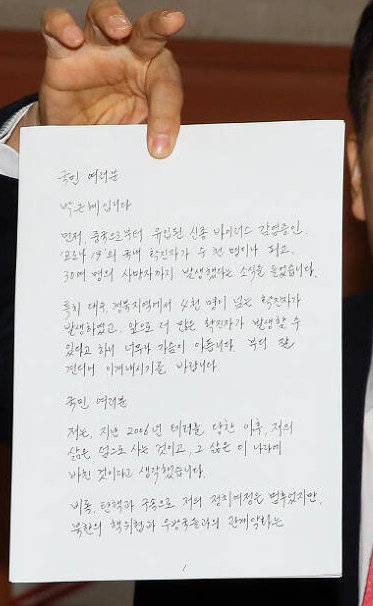 국민 여러분
박근혜입니다
먼저, 중국으로부터 유입된 신종 바이러스 감염증인
'코로나 19'의 국내 확진자가 수 천 명이나 되고
30여 명의 사망자까지 발생했다는 소식을 들었습니다.
특히 대구, 경북지역에서 4천 명이 넘는 확진자가
발생하였고, 앞으로 더 많은 확진자가 발생할 수
있다고 하니 너무나 가슴이 아픕니다. 부디 잘
견디어 이겨내시기를 바랍니다.
국민 여러분
저는, 지난 2006년 테러를 당한 이후, 저의
삶은 덤으로 사는 것이고, 그 삶은 이 나라에
바친 것이라고 생각했습니다.
비록, 탄핵과 구속으로 저의 정치여정은 멈추었지만,
북한의 핵위협과 우방국들과의 관계악화는
1